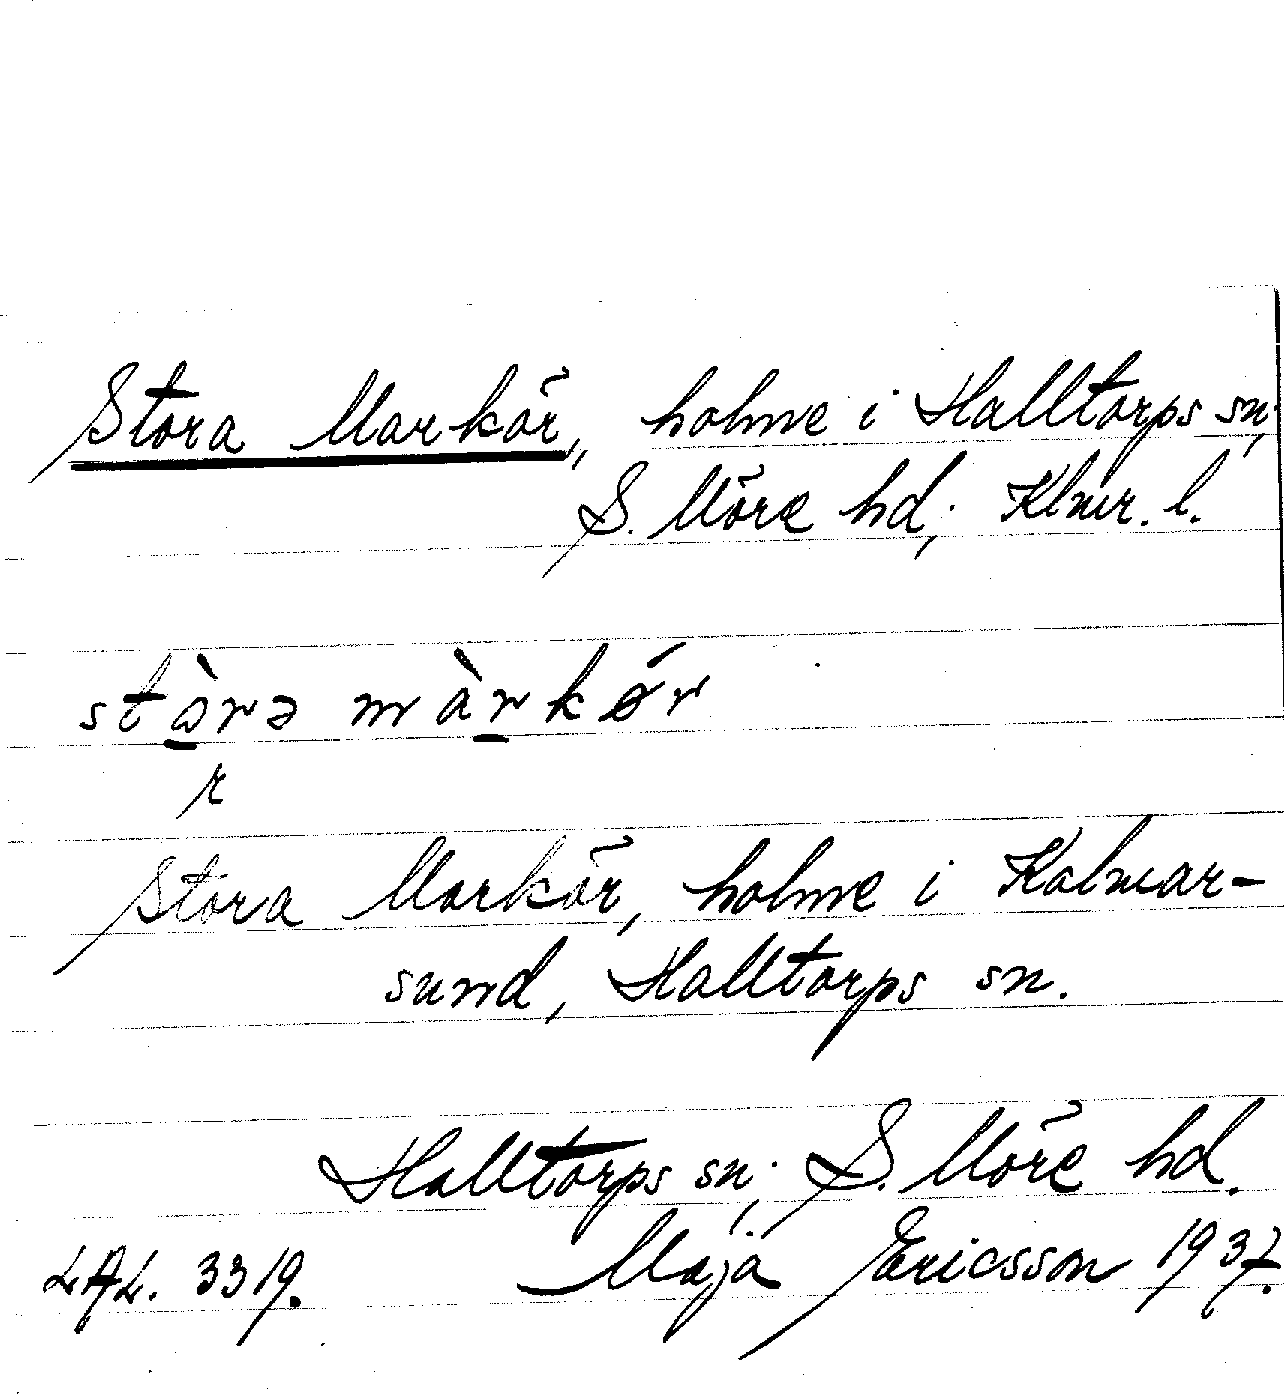 Stora Markör, holme i Halltorps sn,
S. Möre hd; Klmr. l.
stòrə màrkǿr
r
Stora Markör, holme i Kalmar-
sund, Halltorps sn.
Halltorps sn; S. Möre hd.
LAL. 3319. Maja Ericsson 1937.